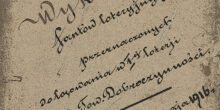 Wyk
fantów loteryjny
przeznaczonych
do losowania w loterji
Tow. Dobroczynności
maja 1916